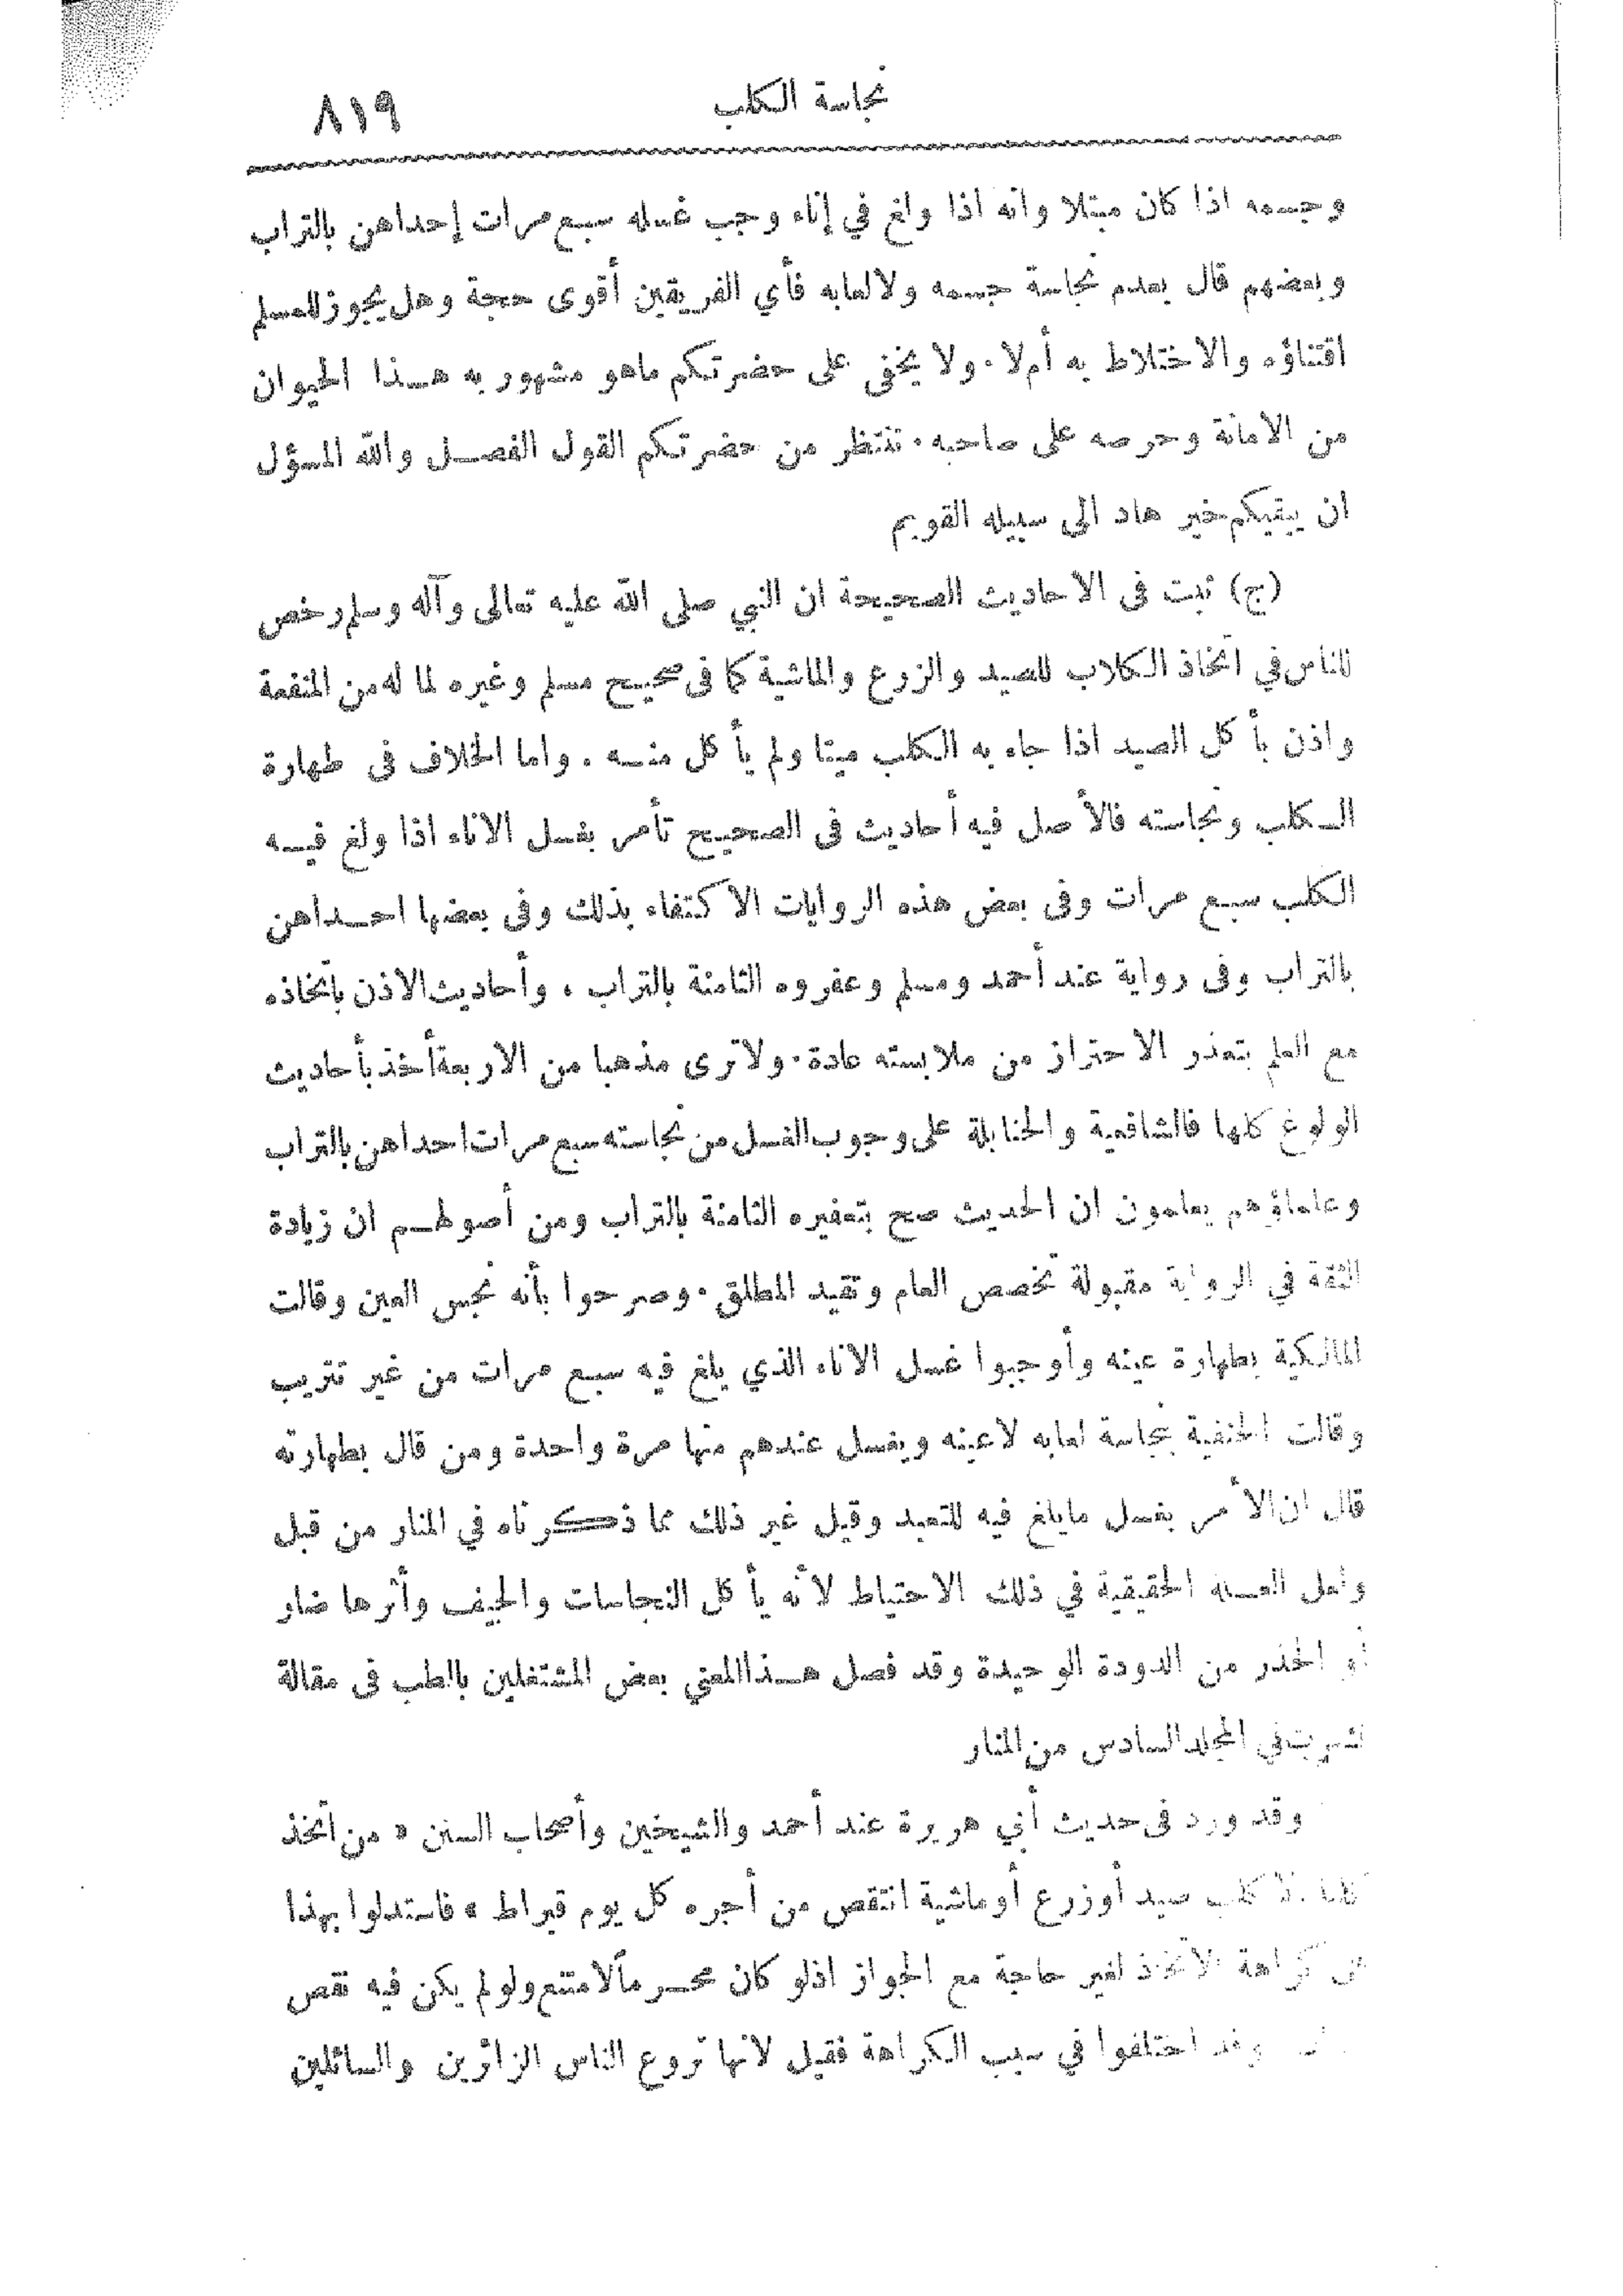 نجاسة الكلب
٨١٩
وجسمه اذا كان مبتلا وانه اذا ولغ في إناء وجب غسله سبع مرات إحداهن بالتراب
وبعضهم قال بعدم نجاسة جسمه ولا لعابه فأي الفريقين أقوى حجة وهل يجوز للمسلم
اقتناؤه والاختلاط به أم لا. ولا يخفى على حضرتكم ماهو مشهور به هذا الحيوان
من الامانة وحرصه على صاحبه. ننتظر من حضرتكم القول الفصل والله المسؤل
ان يبقيكم خير هاد الى سبيله القويم
(ج) ثبت في الاحاديث الصحيحة ان النبي صلى الله عليه تعالى وآله وسلم رخص
للناس في اتخاذ الكلاب للصيد والزرع والماشية كما في صحيح مسلم وغيره لما له من المنفعة
واذن بأكل الصيد اذا جاء به الكلب ميتا ولم يأكل منه. واما الخلاف في طهارة
الكلب ونجاسته فالأصل فيه أحاديث في الصحيح تأمر بغسل الاناء اذا ولغ فيه
الكلب سبع مرات وفي بعض هذه الروايات الاكتفاء بذلك وفي بعضها احداهن
بالتراب وفي رواية عند أحمد ومسلم وعفروه الثامنة بالتراب، وأحاديث الاذن باتخاذه
مع العلم بتعذر الاحتراز من ملابسته عادة. ولا ترى مذهبا من الاربعة أخذ بأحاديث
الولوغ كلها فالشافعية والحنابلة على وجوب الغسل من نجاسته سبع مرات احداهن بالتراب
وعلماؤهم يعلمون ان الحديث صح بتعفيره الثامنة بالتراب ومن أصولهم ان زيادة
الثقة في الرواية مقبولة تخصص العام وتقيد المطلق. وصرحوا بأنه نجس العين وقالت
المالكية بطهارة عينه وأوجبوا غسل الاناء الذي يلغ فيه سبع مرات من غير تتريب
وقالت الحنفية بنجاسة لعابه لاعينه ويغسل عندهم منها مرة واحدة ومن قال بطهارته
قال ان الأمر بغسل مايلغ فيه للتعبد وقيل غير ذلك مما ذكرناه في المنار من قبل
ولعل العلة الحقيقية في ذلك الاحتياط لأنه يأكل النجاسات والجيف وأثرها ضار
أو الحذر من الدودة الوحيدة وقد فصل هذا المعنى بعض المشتغلين بالطب في مقالة
نشرت في المجلد السادس من المنار
وقد ورد في حديث أبي هريرة عند أحمد والشيخين وأصحاب السنن « من اتخذ
كلبا الا كلب صيد أو زرع أو ماشية انتقص من أجره كل يوم قيراط » فاستدلوا بهذا
كراهة الاتخاذ لغير حاجة مع الجواز اذلو كان محرماً لامتنع ولو لم يكن فيه نقص
وقد اختلفوا في سبب الكراهة فقيل لأنها تروع الناس الزائرين والسائلين